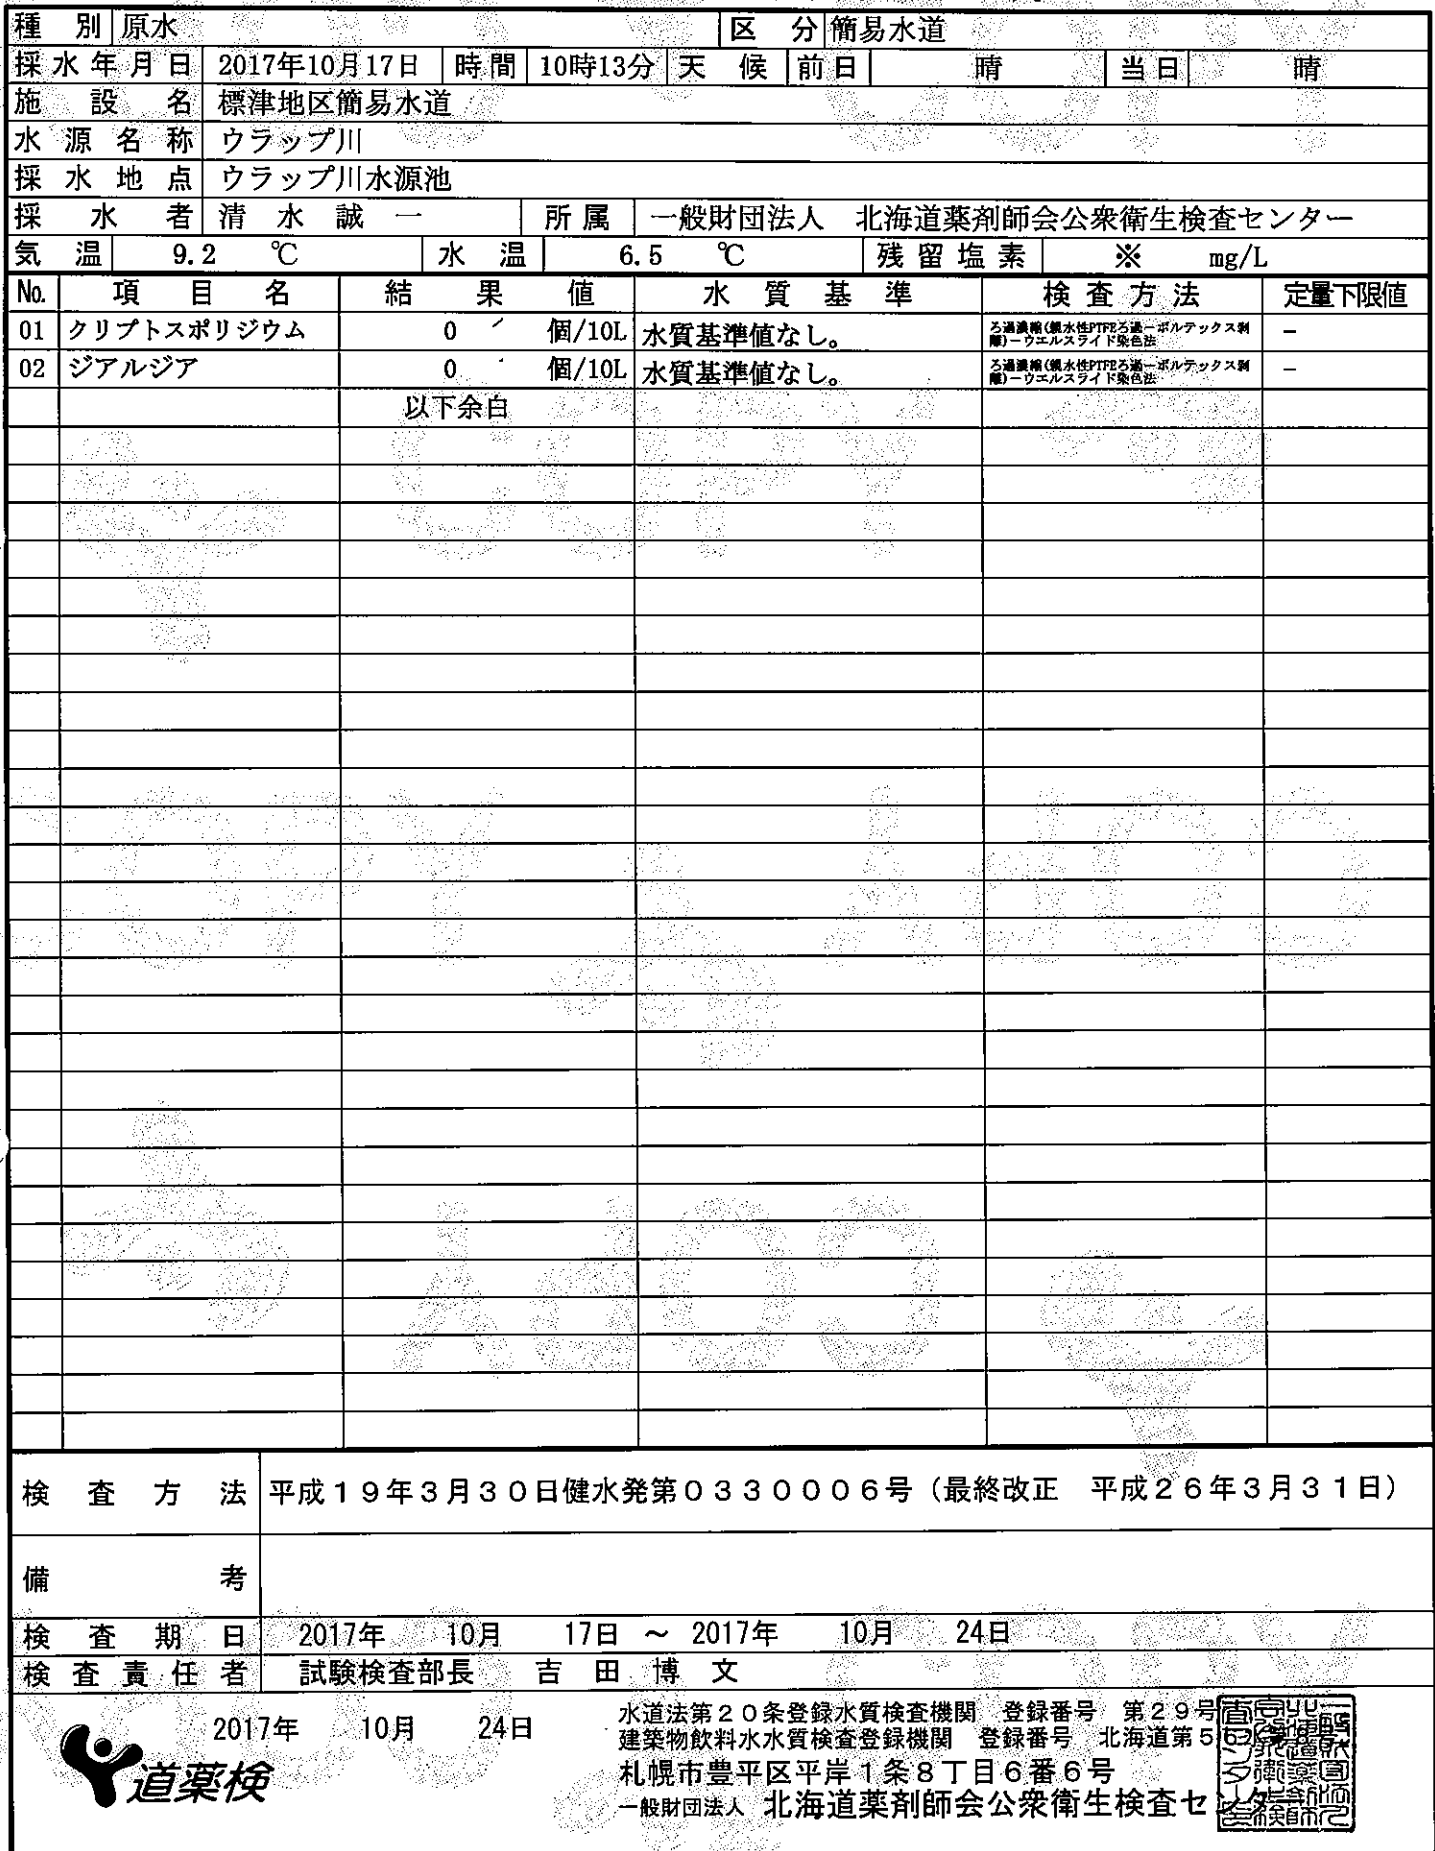 種別 原水 区分 簡易水道
採水年月日 2017年10月17日 時間 10時13分 天候 前日 晴 当日 晴
施設名 標津地区簡易水道
水源名称 ウラップ川
採水地点 ウラップ川水源池
採水者 清水誠一 所属 一般財団法人 北海道薬剤師会公衆衛生検査センター
気温 9.2 ℃ 水温 6.5 ℃ 残留塩素 ※ mg/L
No. 項目名 結果値 水質基準 検査方法 定量下限値
01 クリプトスポリジウム 0 個/10L 水質基準値なし。 ろ過濃縮(親水性PTFEろ過－ボルテックス剥離)－ウエルスライド染色法 －
02 ジアルジア 0 個/10L 水質基準値なし。 ろ過濃縮(親水性PTFEろ過－ボルテックス剥離)－ウエルスライド染色法 －
以下余白
検査方法 平成１９年３月３０日健水発第０３３０００６号（最終改正 平成２６年３月３１日）
備考
検査期日 2017年 10月 17日 ～ 2017年 10月 24日
検査責任者 試験検査部長 吉田博文
2017年 10月 24日
道薬検
水道法第２０条登録水質検査機関 登録番号 第２９号
建築物飲料水水質検査登録機関 登録番号 北海道第５６
札幌市豊平区平岸１条８丁目６番６号
一般財団法人 北海道薬剤師会公衆衛生検査センター
COPY